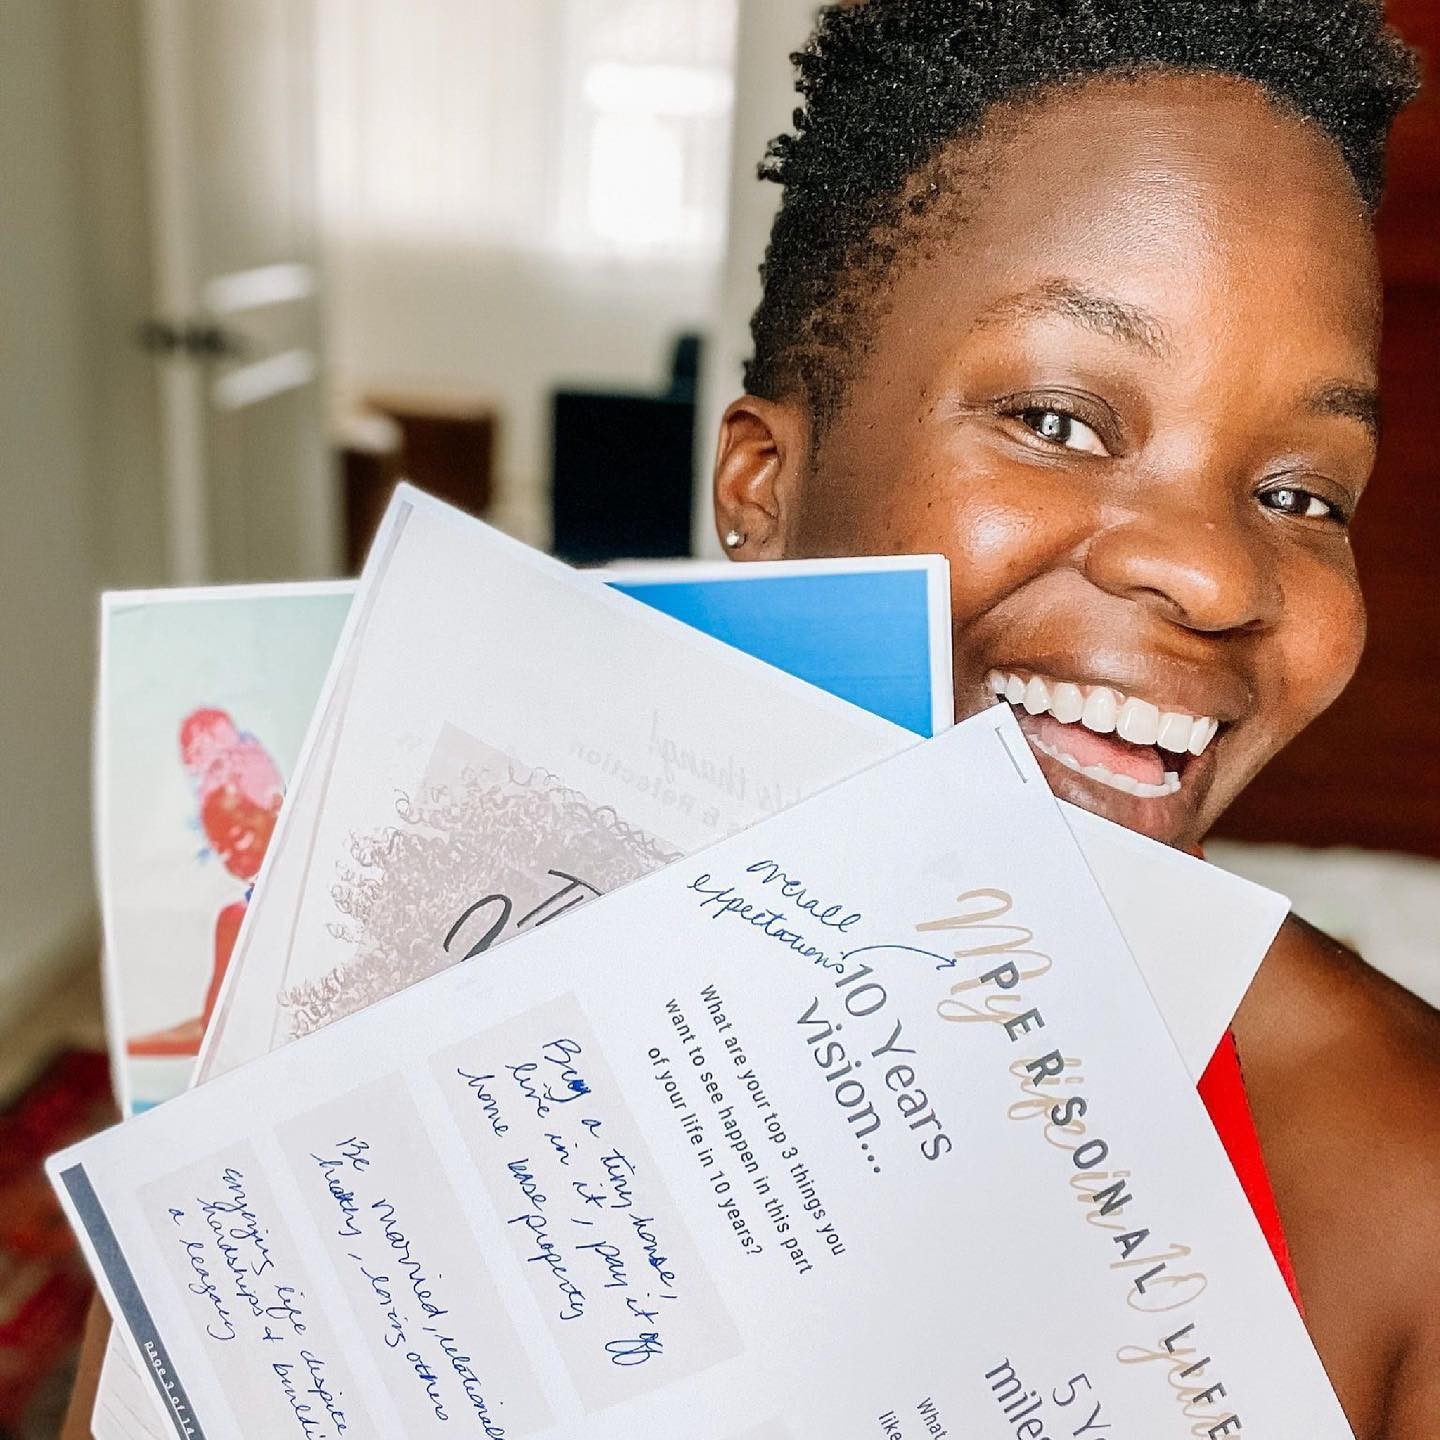 My life in 10 years
PERSONAL LIFE
overall
expectations
10 Years
vision...
What are your top 3 things you
want to see happen in this part
of your life in 10 years?
Buy a tiny house,
live in it, pay it off
home base property
Be married, relationally
healthy, loving others
enjoying life dispite
hardships & buildi
a leagacy
5 Y
miles
What
like
page 3 of 14